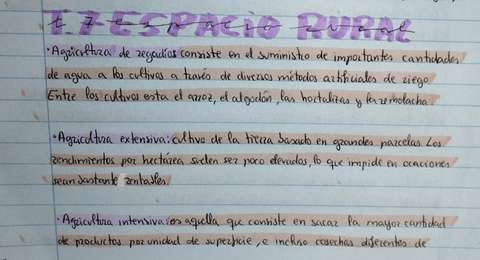 T.7 ESPACIO RURAL
·Agricultura de regadíos consiste en el suministro de importantes cantidades
de agua a los cultivos a través de diversos métodos artificiales de riego.
Entre los cultivos esta el arroz, el algodón, las hortalizas y la remolacha.
·Agricultura extensiva: cultivo de la tierra basado en grandes parcelas. Los
rendimientos por hectárea suelen ser poco elevados, lo que impide en ocaciones
sean bastante rentables.
·Agricultura intensiva: es aquella que consiste en sacar la mayor cantidad
de productos por unidad de superficie, e incluso cosechas diferentes de